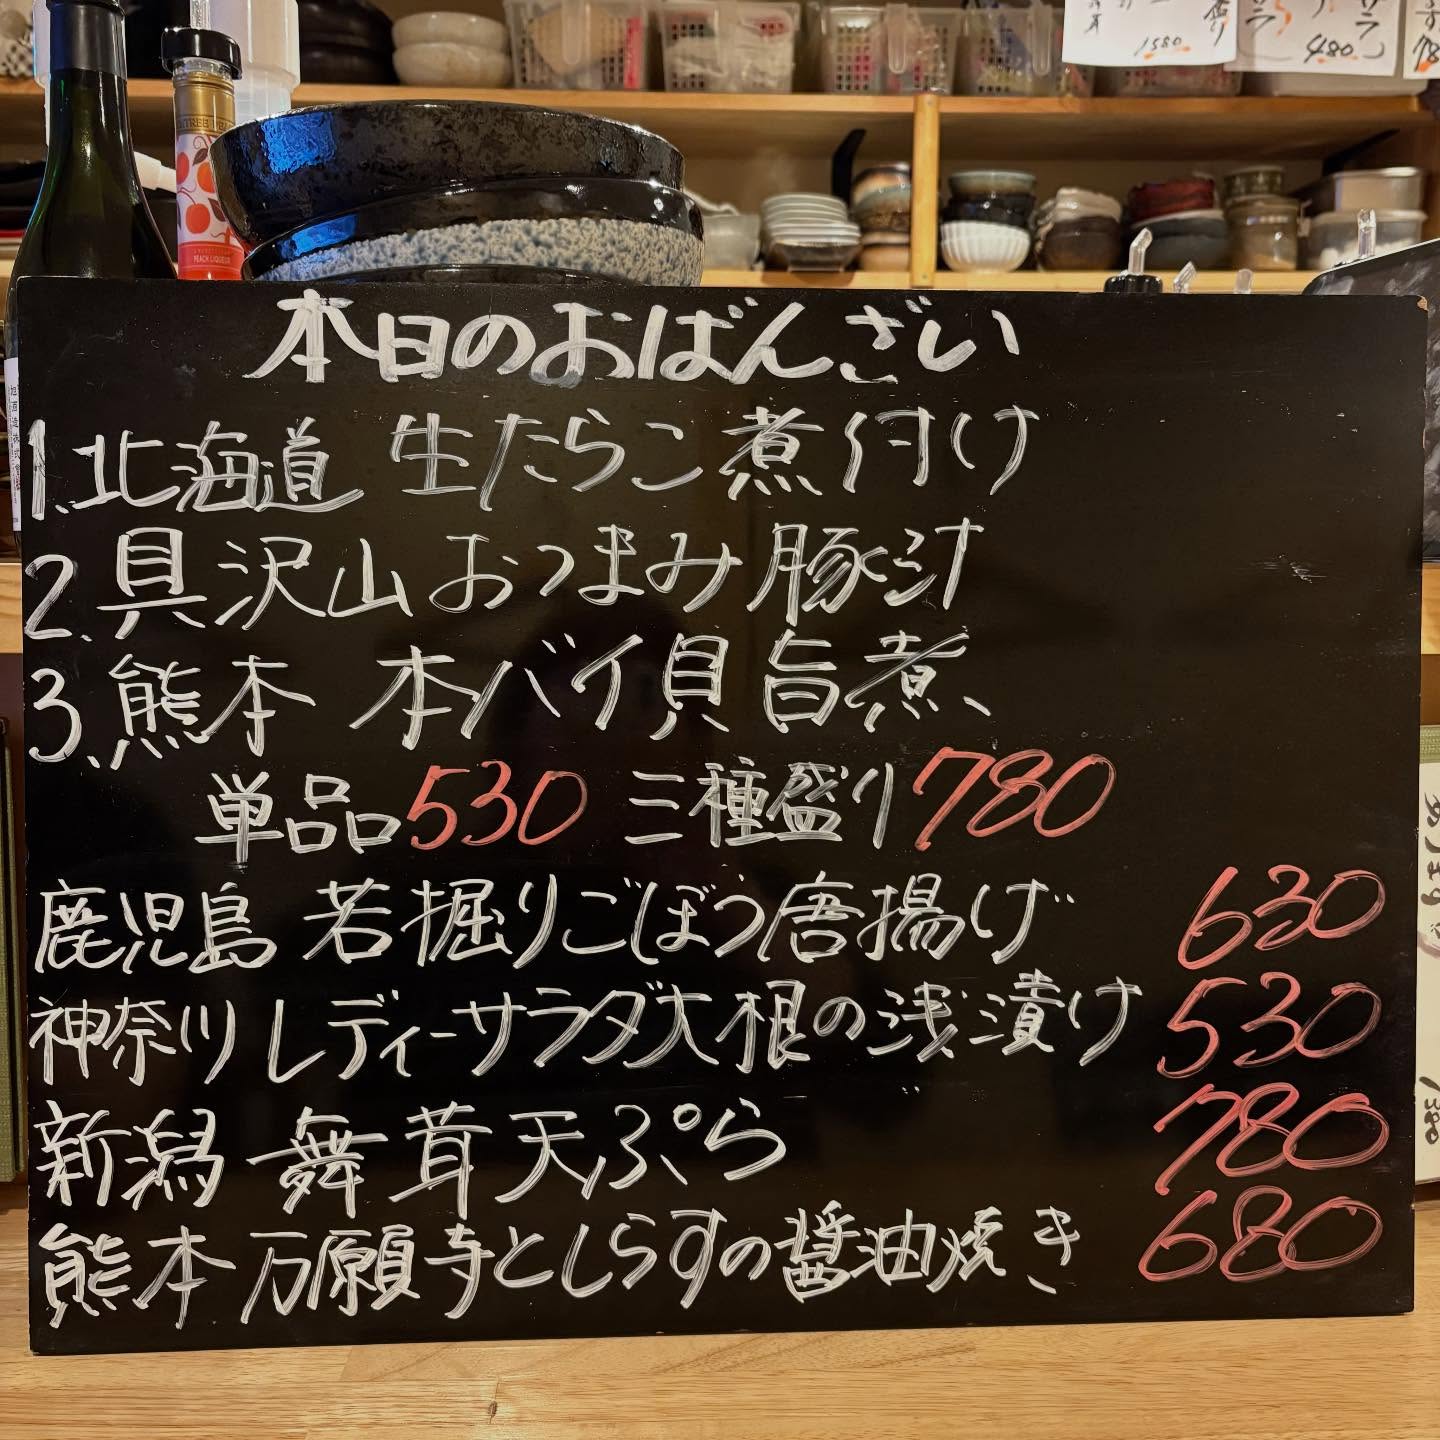 1580
480
TREE
PEACH LIQUEUR
本日のおばんざい
1.北海道 生たらこ煮付け
2.具沢山おつまみ豚汁
3.熊本 本バイ貝旨煮、
単品530 三種盛り780
鹿児島 若掘りごぼう唐揚げ 630
神奈川 レディーサラダ大根の浅漬け 530
新潟 舞茸天ぷら 780
熊本 万願寺としらすの醤油焼き 680